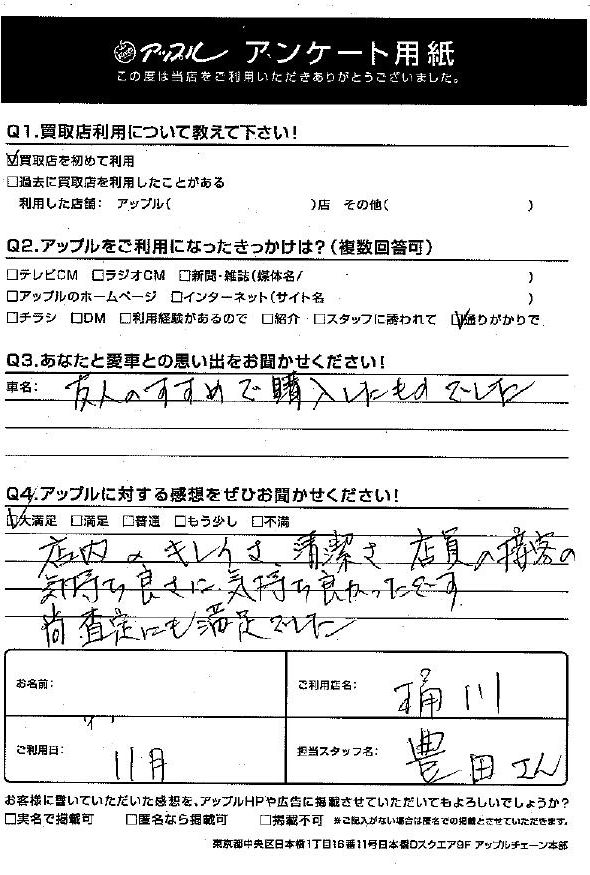 アップル アンケート用紙
この度は当店をご利用いただきありがとうございました。
Q1.買取店利用について教えて下さい!
☑買取店を初めて利用
□過去に買取店を利用したことがある
利用した店舗: アップル( )店 その他( )
Q2.アップルをご利用になったきっかけは?(複数回答可)
□テレビCM □ラジオCM □新聞・雑誌(媒体名/ )
□アップルのホームページ □インターネット(サイト名 )
□チラシ □DM □利用経験があるので □紹介 □スタッフに誘われて ☑通りがかりで
Q3.あなたと愛車との思い出をお聞かせください!
車名: 友人のすすめで購入したものでした
Q4.アップルに対する感想をぜひお聞かせください!
☑大満足 □満足 □普通 □もう少し □不満
店内のキレイさ 清潔さ 店員の接客の
気持ち良さに気持ち良かったです
尚査定にも満足でした
お名前:
ご利用店名: 桶川
ご利用日: 11月
担当スタッフ名: 豊田さん
お客様に書いていただいた感想を、アップルHPや広告に掲載させていただいてもよろしいでしょうか?
□実名で掲載可 □匿名なら掲載可 □掲載不可 ※ご記入がない場合は匿名での掲載とさせていただきます。
東京都中央区日本橋1丁目16番11号日本橋Dスクエア9F アップルチェーン本部